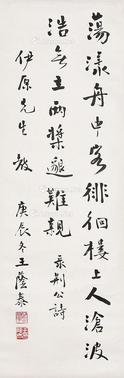 蕩漾舟中客徘徊樓上人滄波
浩無主兩槳邈難親 录荆公詩
伊原先生教
庚辰冬王蔭泰